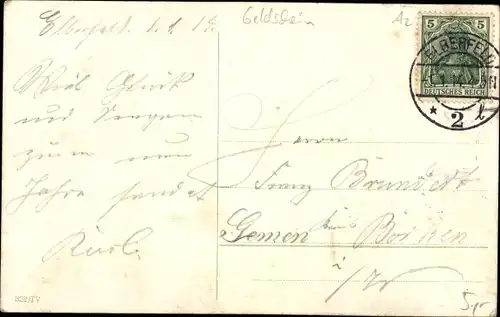 Elberfeld. 1.1.14.
Viel Glück
und Seegen
zum neuen
Jahre sendet
Karl.
Geldschein
Az
5 5
DEUTSCHES REICH
ELBERFELD
* 2 l
Herrn
Franz
Gemen Kreis Borken
i/W
5,-
832/IV